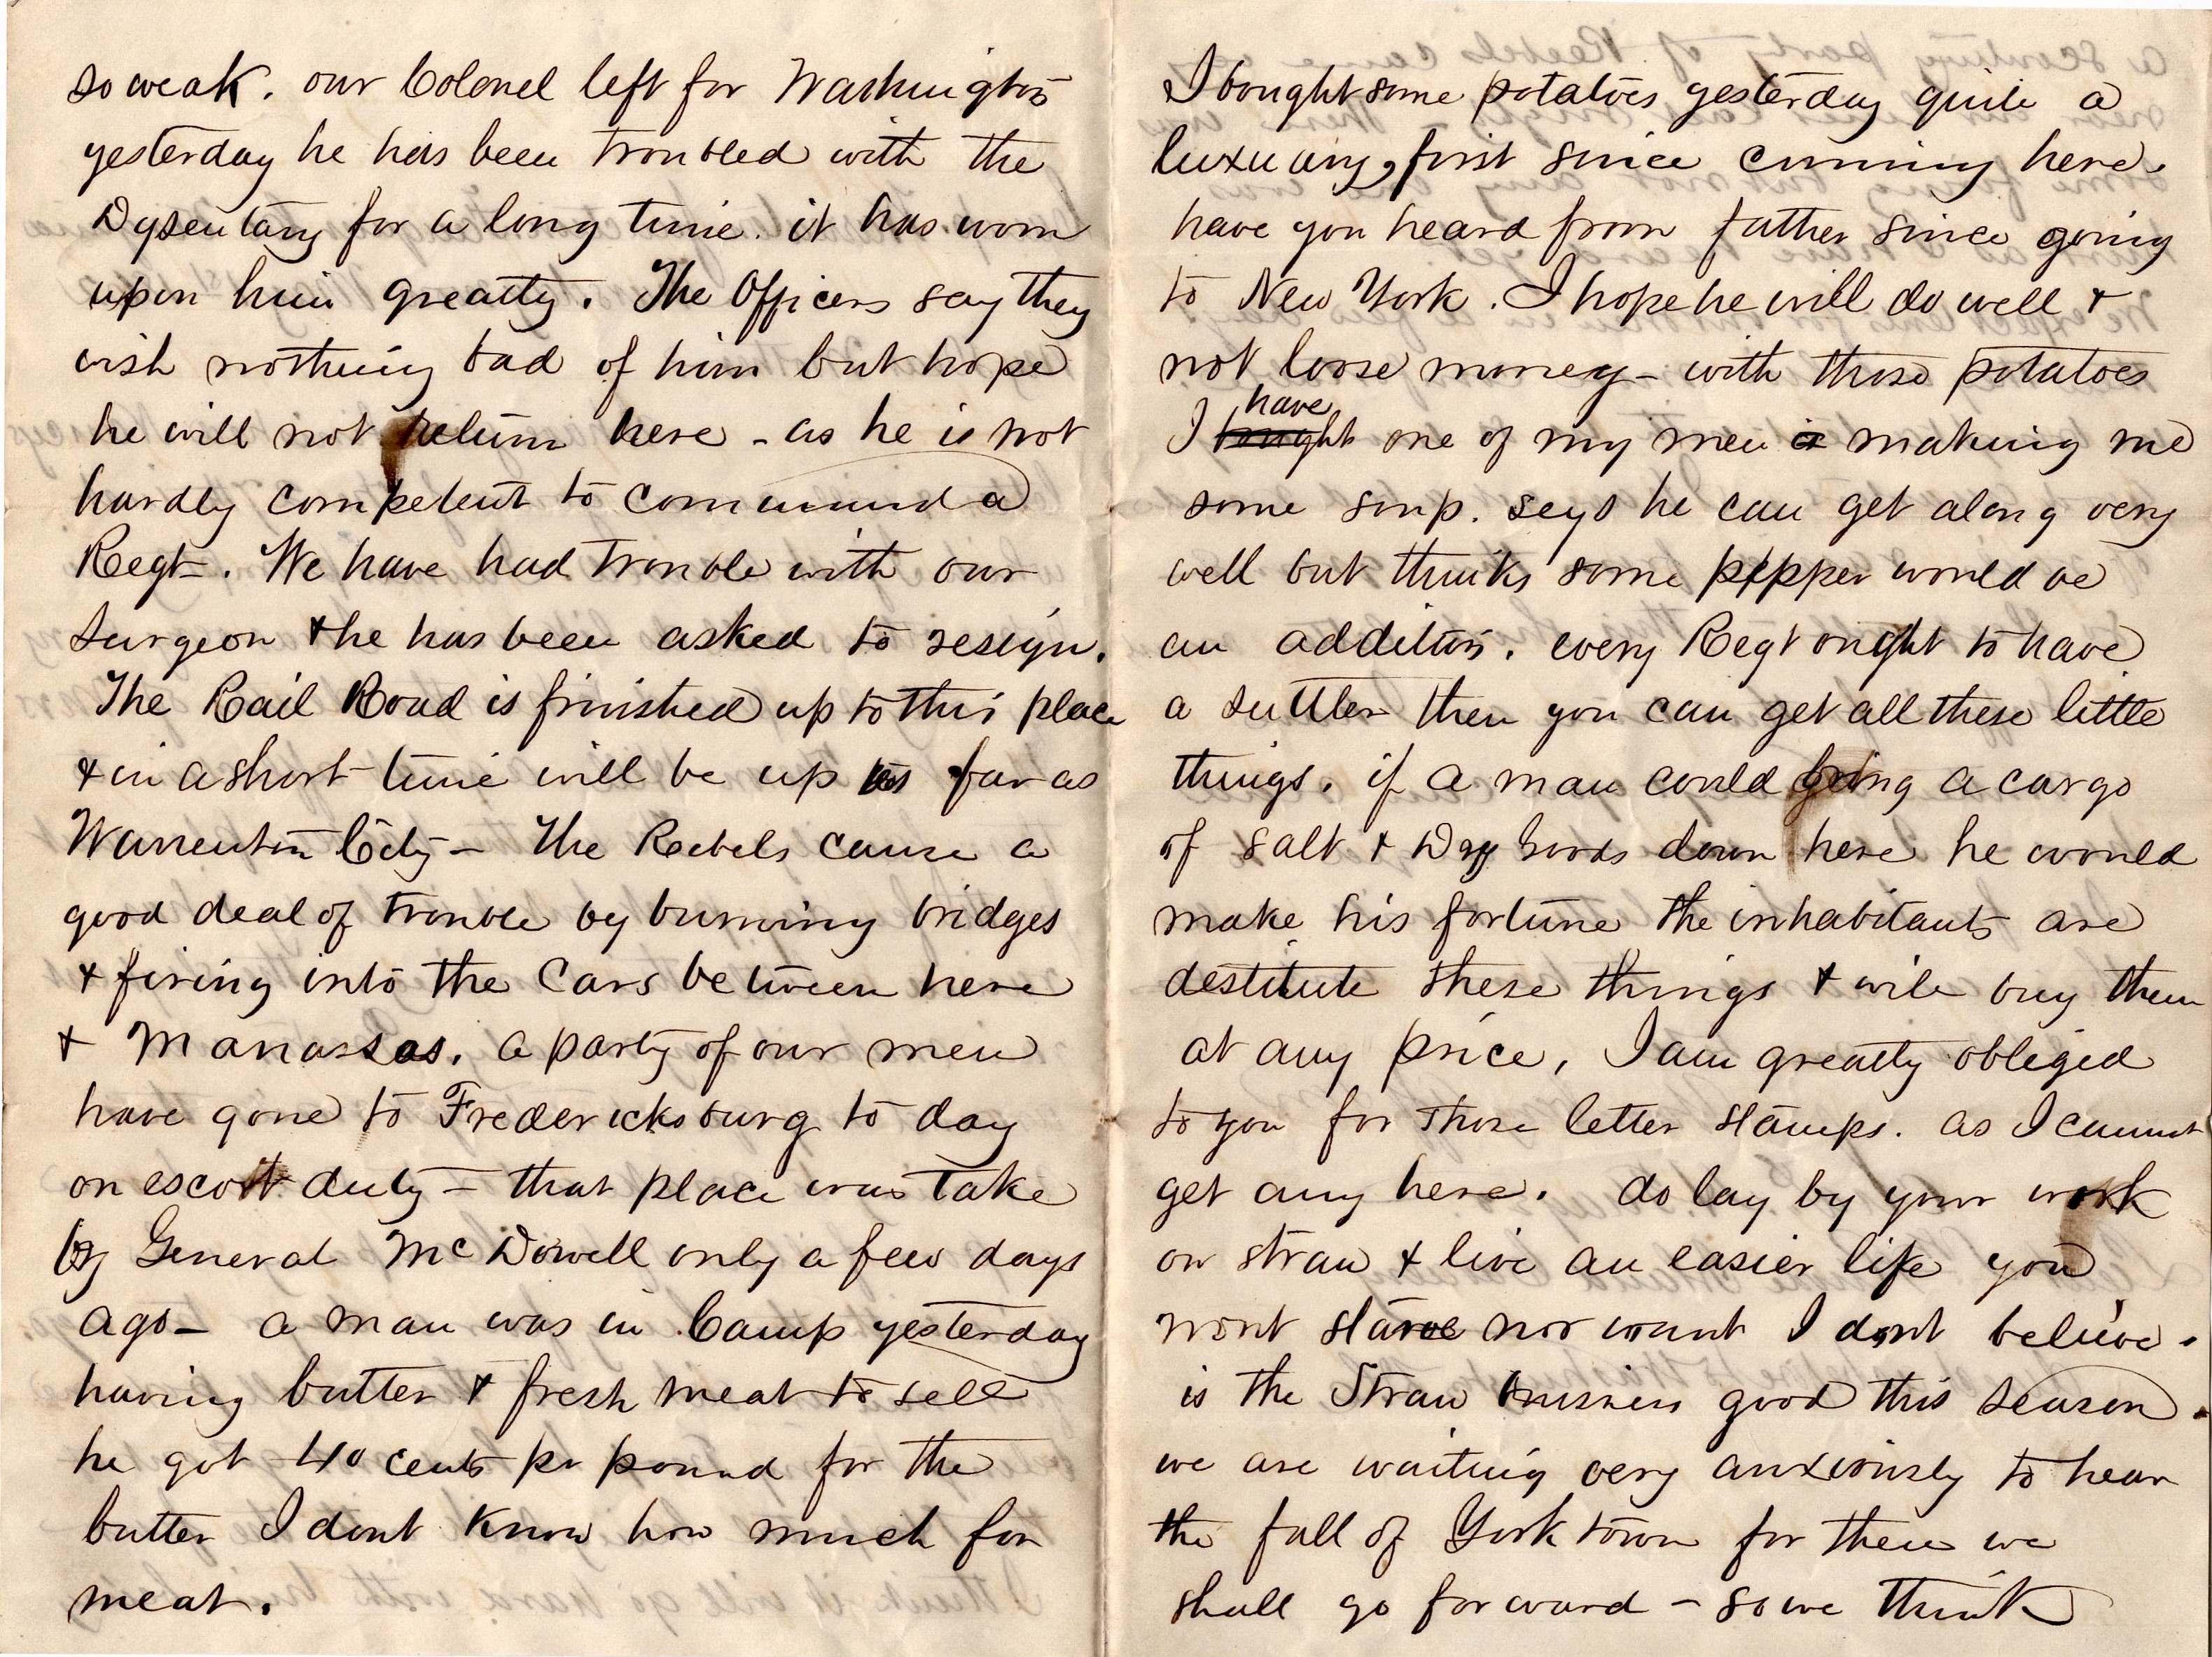 so weak. our Colonel left for Washington
yesterday he has been troubled with the
Dysentary for a long time. it has worn
upon him greatly. The Officers say they
wish nothing bad of him but hope
he will not return here - as he is not
hardly competent to command a
Regt-. We have had trouble with our
Surgeon & he has been asked to resign.
The Rail Road is finished up to this place
& in a short time will be up as far as
Warrenton City - The Reebels cause a
good deal of trouble by burning bridges
& firing into the Cars between here
& Manassas. a party of our men
have gone to Fredericksburg to day
on escort duty - that place was take
by General McDowell only a few days
ago - a man was in Camp yesterday
having butter & fresh meat to sell
he got 40 cents pr pound for the
butter I dont know how much for
meat.
I bought some potatoes yesterday quite a
luxuary, first since coming here.
have you heard from father since going
to New York. I hope he will do well &
not loose money - with those potatoes
have
I bought one of my men is making me
some soup. says he can get along very
well but thinks some pepper would be
an addition. every Regt ought to have
a suttler then you can get all these little
things. if a man could bring a cargo
of salt & Dry Goods down here he would
make his fortune the inhabitants are
destitute these things & will buy them
at any price, I am greatly obliged
to you for those letter stamps. as I cannot
get any here. do lay by your work
on straw & live an easier life you
wont starve nor want I dont believe.
is the Straw business good this season.
we are waiting very anxiously to hear
the fall of York town for then we
shall go forward - so we think